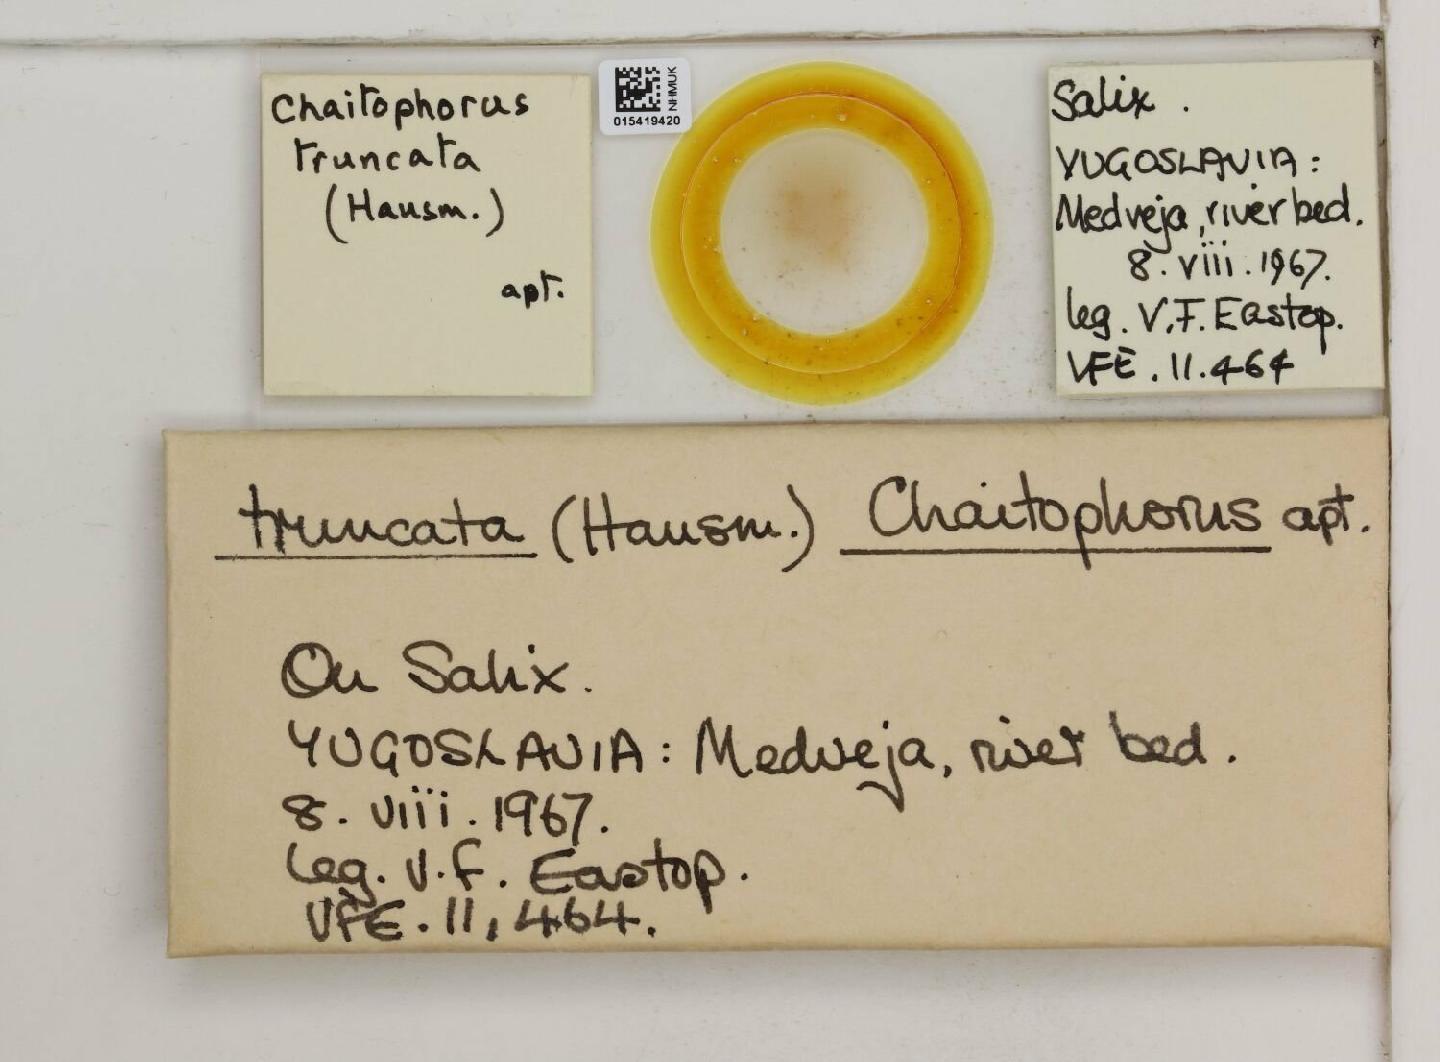 Chaitophorus
truncata
(Hausm.)
apt.
NHMUK
015419420
Salix.
YUGOSLAVIA:
Medveja, river bed.
8.viii.1967.
leg. V.F. Eastop.
VFE.11.464
truncata (Hausm.) Chaitophorus apt.
On Salix.
YUGOSLAVIA: Medveja, river bed.
8.viii.1967.
Leg. V.F. Eastop.
VFE.11,464.